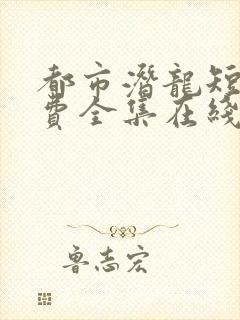 都市潛龍短
費全集在綫
魯志宏